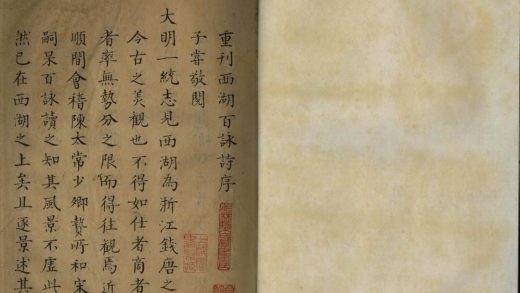 重刊西湖百詠詩序
予嘗敬閱
大明一統志見西湖為浙江錢唐之
今古之美觀也不得如仕者商者
者率無勢分之限而得往觀焉近
順間會稽陳太常少卿贄所和宋
嗣杲百詠讀之知其風景不虛此
然已在西湖之上矣且逐景述其